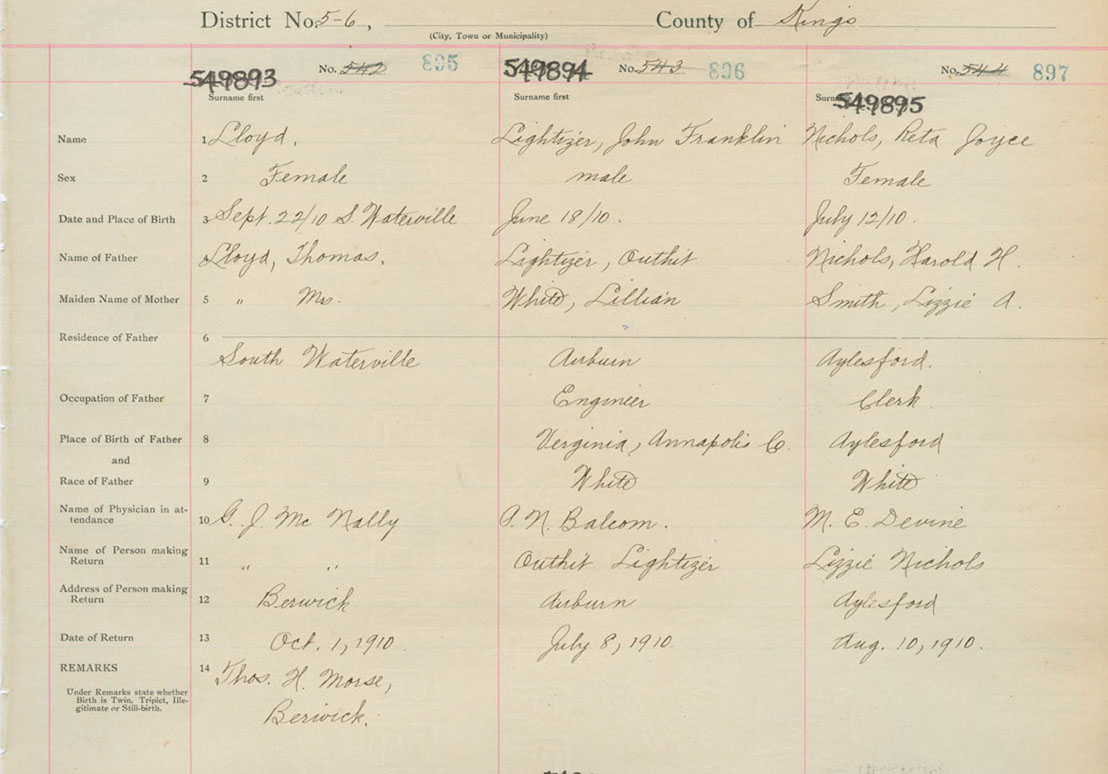 District No. 5-6, County of Kings
(City, Town or Municipality)
549893 No. 542 895 549894 No. 543 896 549895 No. 544 897
Surname first Surname first Surname first
Name 1 Lloyd, Lightizer, John Franklin Nichols, Reta Joyce
Sex 2 Female male Female
Date and Place of Birth 3 Sept. 22/10 S. Waterville June 18/10. July 12/10.
Name of Father 4 Lloyd, Thomas. Lightizer, Outhit Nichols, Harold H.
Maiden Name of Mother 5 " Mrs. White, Lillian Smith, Lizzie A.
Residence of Father 6
South Waterville Auburn Aylesford.
Occupation of Father 7 Engineer Clerk
Place of Birth of Father 8 Virginia, Annapolis Co. Aylesford
and
Race of Father 9 White White
Name of Physician in at-
tendance 10 G. J. Mc Nally P. N. Balcom. M. E. Devine
Name of Person making
Return 11 " " Outhit Lightizer Lizzie Nichols
Address of Person making
Return 12 Berwick Auburn Aylesford
Date of Return 13 Oct. 1, 1910 July 8, 1910 Aug. 10, 1910.
REMARKS 14 Thos. H. Morse,
Under Remarks state whether
Birth is Twin, Triplet, Ille-
gitimate or Still-birth.
Berwick.